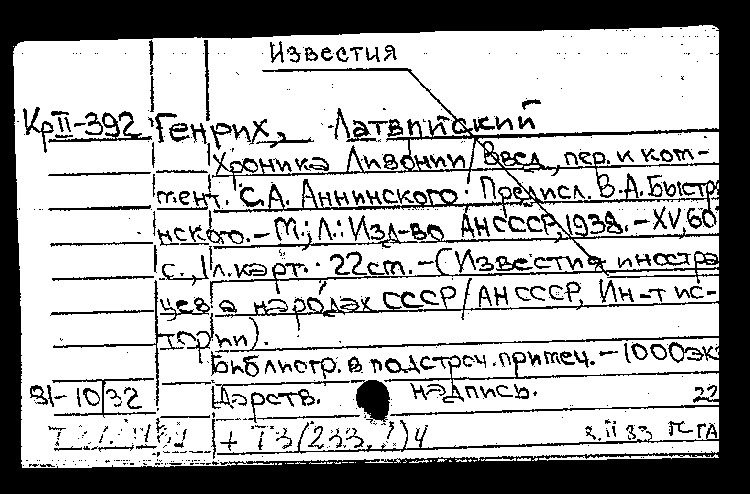 Известия
КрII-392 Генрих, Латвийский
Хроника Ливонии/Введ., пер. и ком-
мент. С.А. Аннинского; Предисл. В.А. Быстря
нского. - М.; Л.: Изд-во АН СССР, 1938. - XV, 607
с., 1 л. карт.; 22 см. - (Известия иностра
цев о народах СССР/АН СССР, Ин-т ис-
тории).
Библиогр. в подстроч. примеч. - 1000 экз
81-10/32 Дарств. надпись. 22
+ Т3(233.7)4 2.II 83 ГА